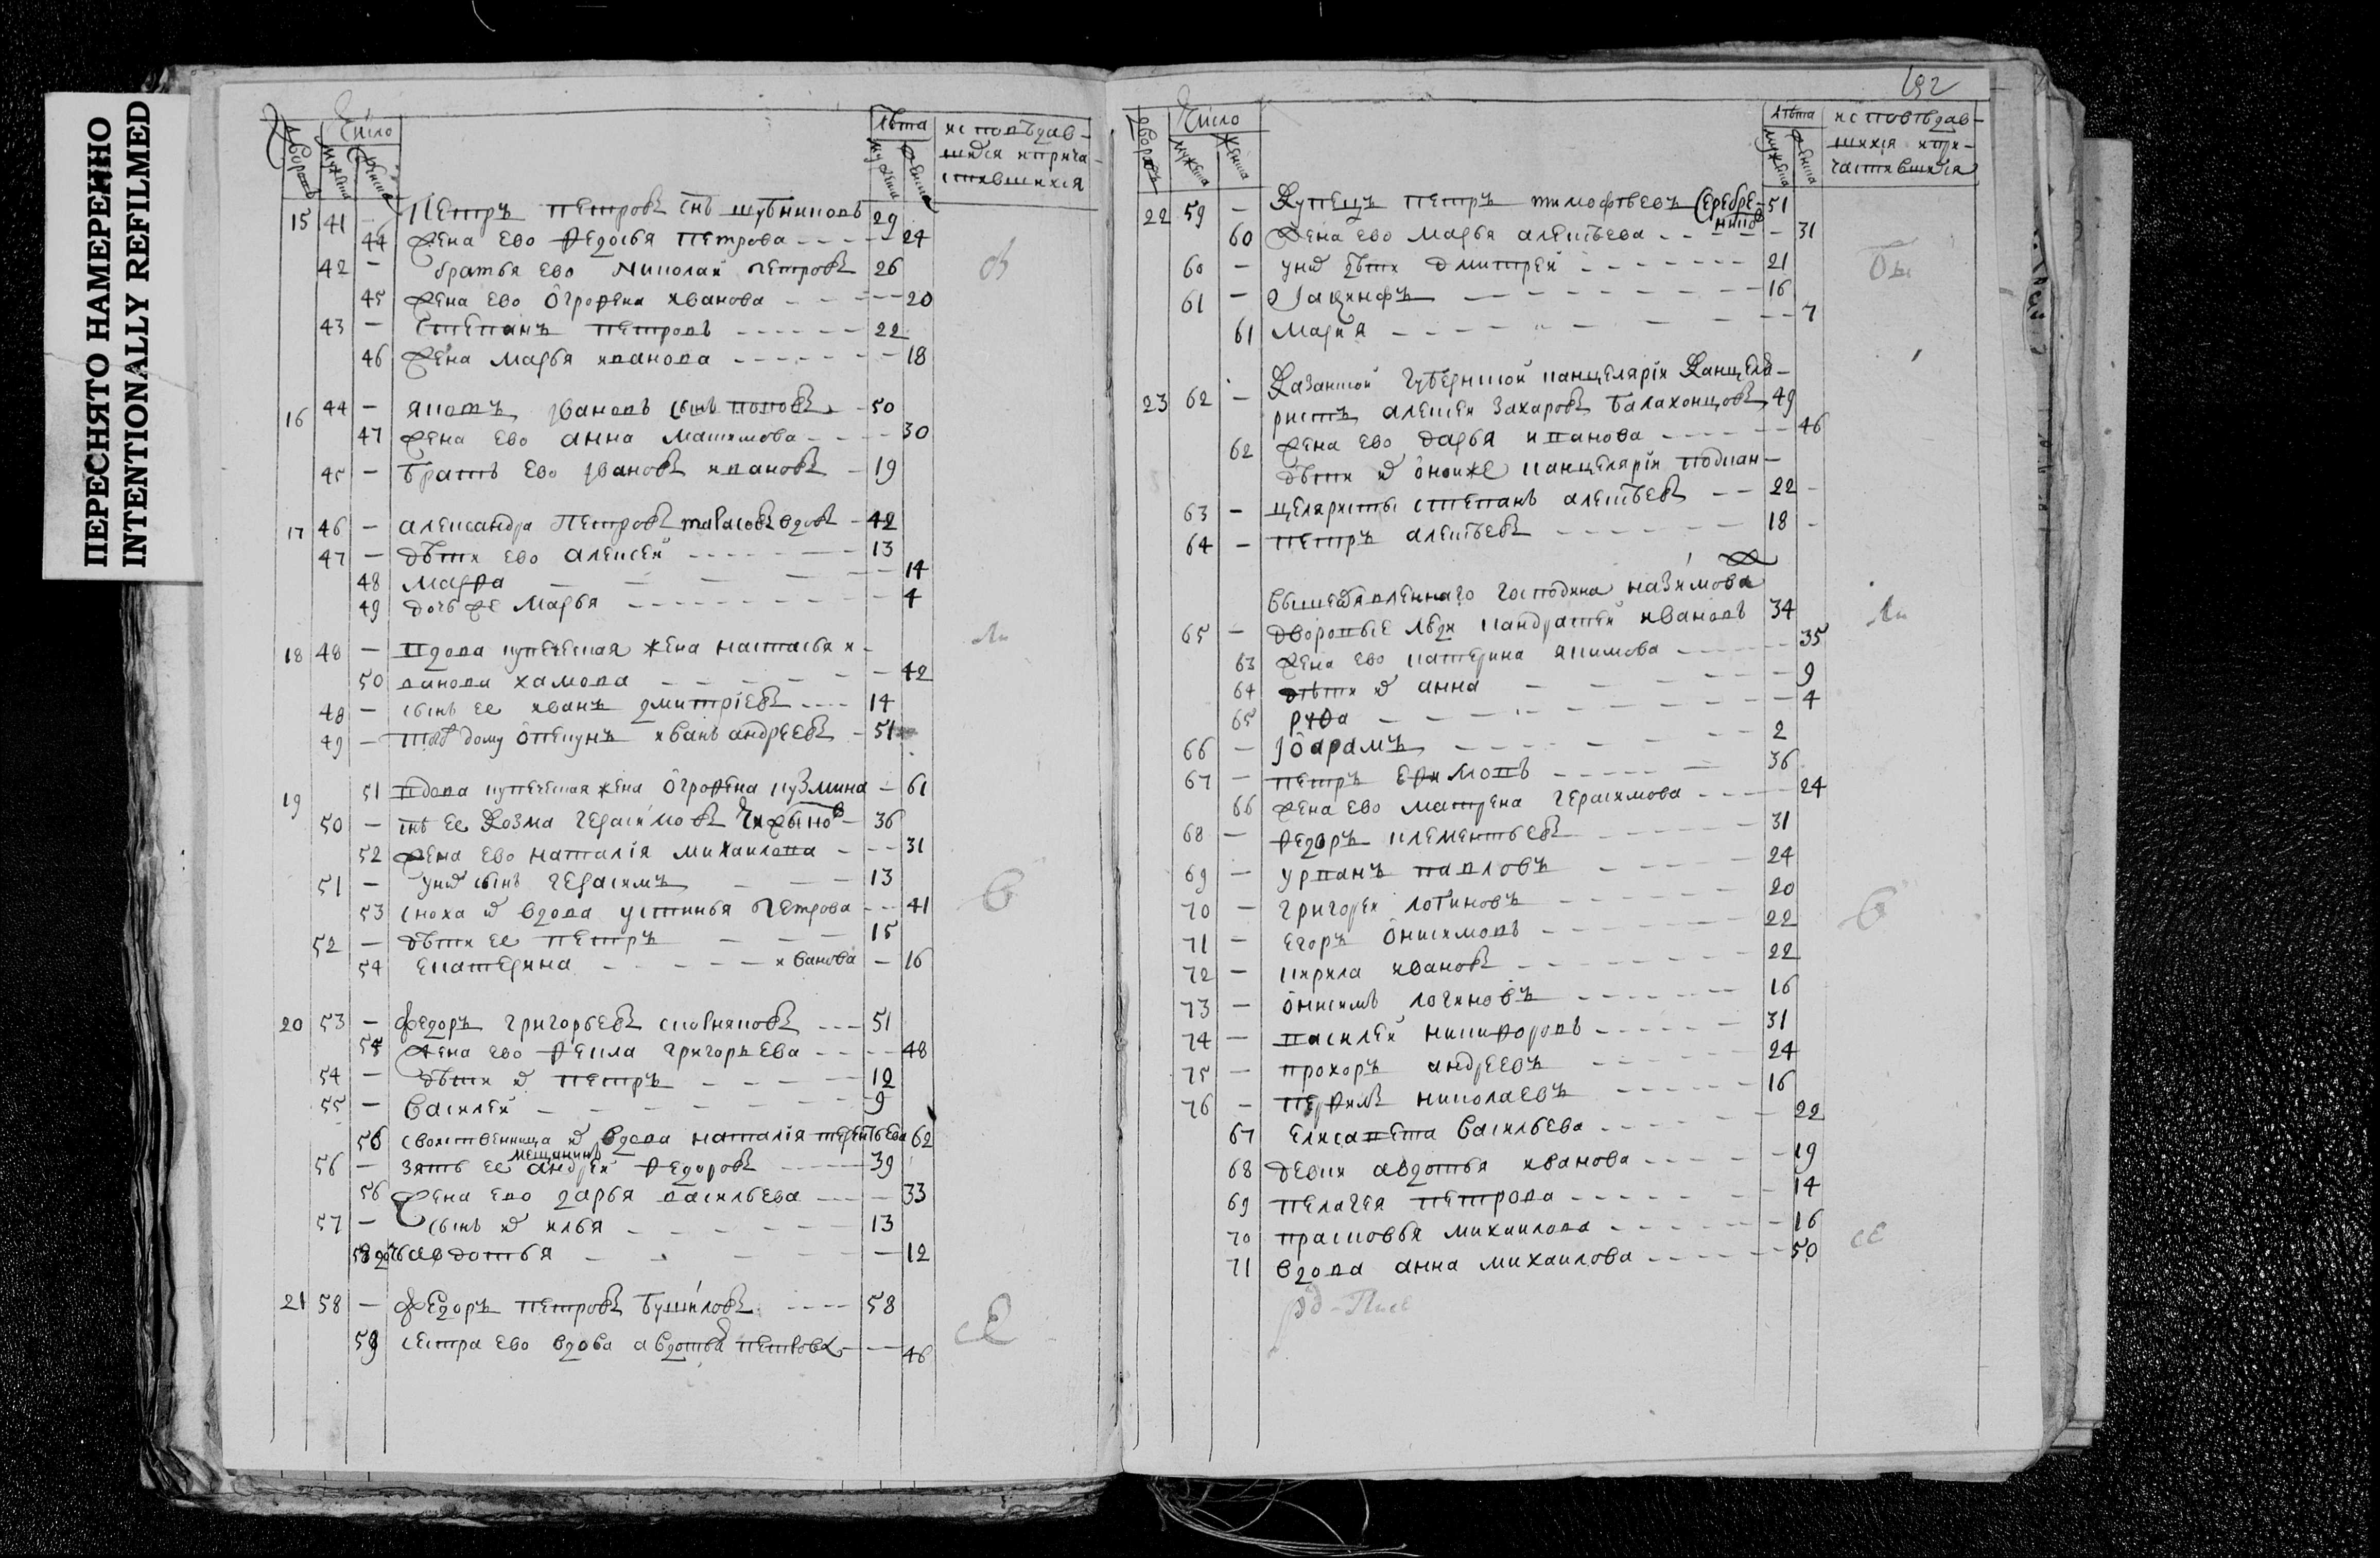 ПЕРЕСНЯТО НАМЕРЕННО
INTENTIONALLY REFILMED
Число Лѣта исповѣдав-
дворовъ мужеска женска мужеска женска шихся и прича-
стившихся
15 41 – Петръ Петровъ снъ 29
44 жена ево Федосья Петрова – 24
42 – братья ево Николай Петровъ 26
45 жена ево Огрофена Иванова – 20
43 – Степанъ Петровъ 22
46 жена Марья Иванова – 18
16 44 – Яковъ Ивановъ снъ Поповъ – 50
47 жена ево Анна Максимова – 30
45 – братъ ево Ивановъ – 19
17 46 – Александра Петровъ вдовъ – 42
47 – дѣти ево Алексей – 13
48 Марфа – 14
49 дочь же Марья – 4
18 48 – вдова купеческая жена Настасья И-
50 ванова Хамова – 42
48 – сынъ ее Иванъ Дмитріевъ 14
49 – дому опекунъ Иванъ Андреевъ – 51
19 51 вдова купеческая жена Огрофена Кузмина – 61
50 – снъ ее Козма Герасимовъ – 36
52 жена ево Наталія Михаилова – 31
51 – у них сынъ Герасимъ – 13
53 сноха их вдова Устинья Петрова – 41
52 – дѣти ее Петръ – 15
54 Екатерина – Иванова – 16
20 53 – Федоръ Григорьевъ 51
54 жена ево Фекла Григорьева – 48
54 – дѣти их Петръ – 12
55 – Василей – 9
56 своиственница их вдова Наталія Терентьева 62
мещанинъ
56 – зять ее Андрей Федоровъ – 39
56 жена ево Дарья Васильева – 33
57 – сынъ их Илья – 13
58 дочь Авдотья – 12
21 58 – Федоръ Петровъ Бушиловъ 58
59 сестра ево вдова Авдотья Петрова – 46
192
Число Лѣта исповѣдав-
дворовъ мужеска женска мужеска женска шихся и при-
частившихся
22 59 – Купецъ Петръ Тимофѣевъ Серебре- 51
никовъ
60 жена ево Марья Алексѣева – 31
60 – у них дѣти Дмитрей – 21
61 – Іакинфъ – 16
61 Мария – 7
Казанской губернской канцеляріи канцеля-
23 62 – ристъ Алексеи Захаровъ Балахонцовъ 49
62 жена ево Дарья Иванова – 46
дѣти их оноиже канцеляріи подкан-
63 – целяристы Степанъ Алексѣевъ – 22
64 – Петръ Алексѣевъ – 18
вышеявленнаго господина Назимова
65 – дворовые люди Кандратеи Ивановъ 34
63 жена ево Катерина Якимова – 35
64 дѣти их Анна – 9
65 – 4
66 – – 2
67 – Петръ Ефимовъ – 36
66 жена ево Матрена Герасимова – 24
68 – Федоръ Клементьевъ – 31
69 – Урванъ Павловъ – 24
70 – Григореи Логиновъ – 20
71 – Егоръ Онисимовъ – 22
72 – Кирила Ивановъ – 22
73 – Онисимъ Логиновъ – 16
74 – Василей Никифоровъ – 31
75 – Прохоръ Андреевъ – 24
76 – Николаевъ – 16
67 Елисавета Васильева – 22
68 девки Авдотья Иванова – 19
69 Пелагея Петрова – 14
70 Прасковья Михаилова – 16
71 вдова Анна Михаилова – 50